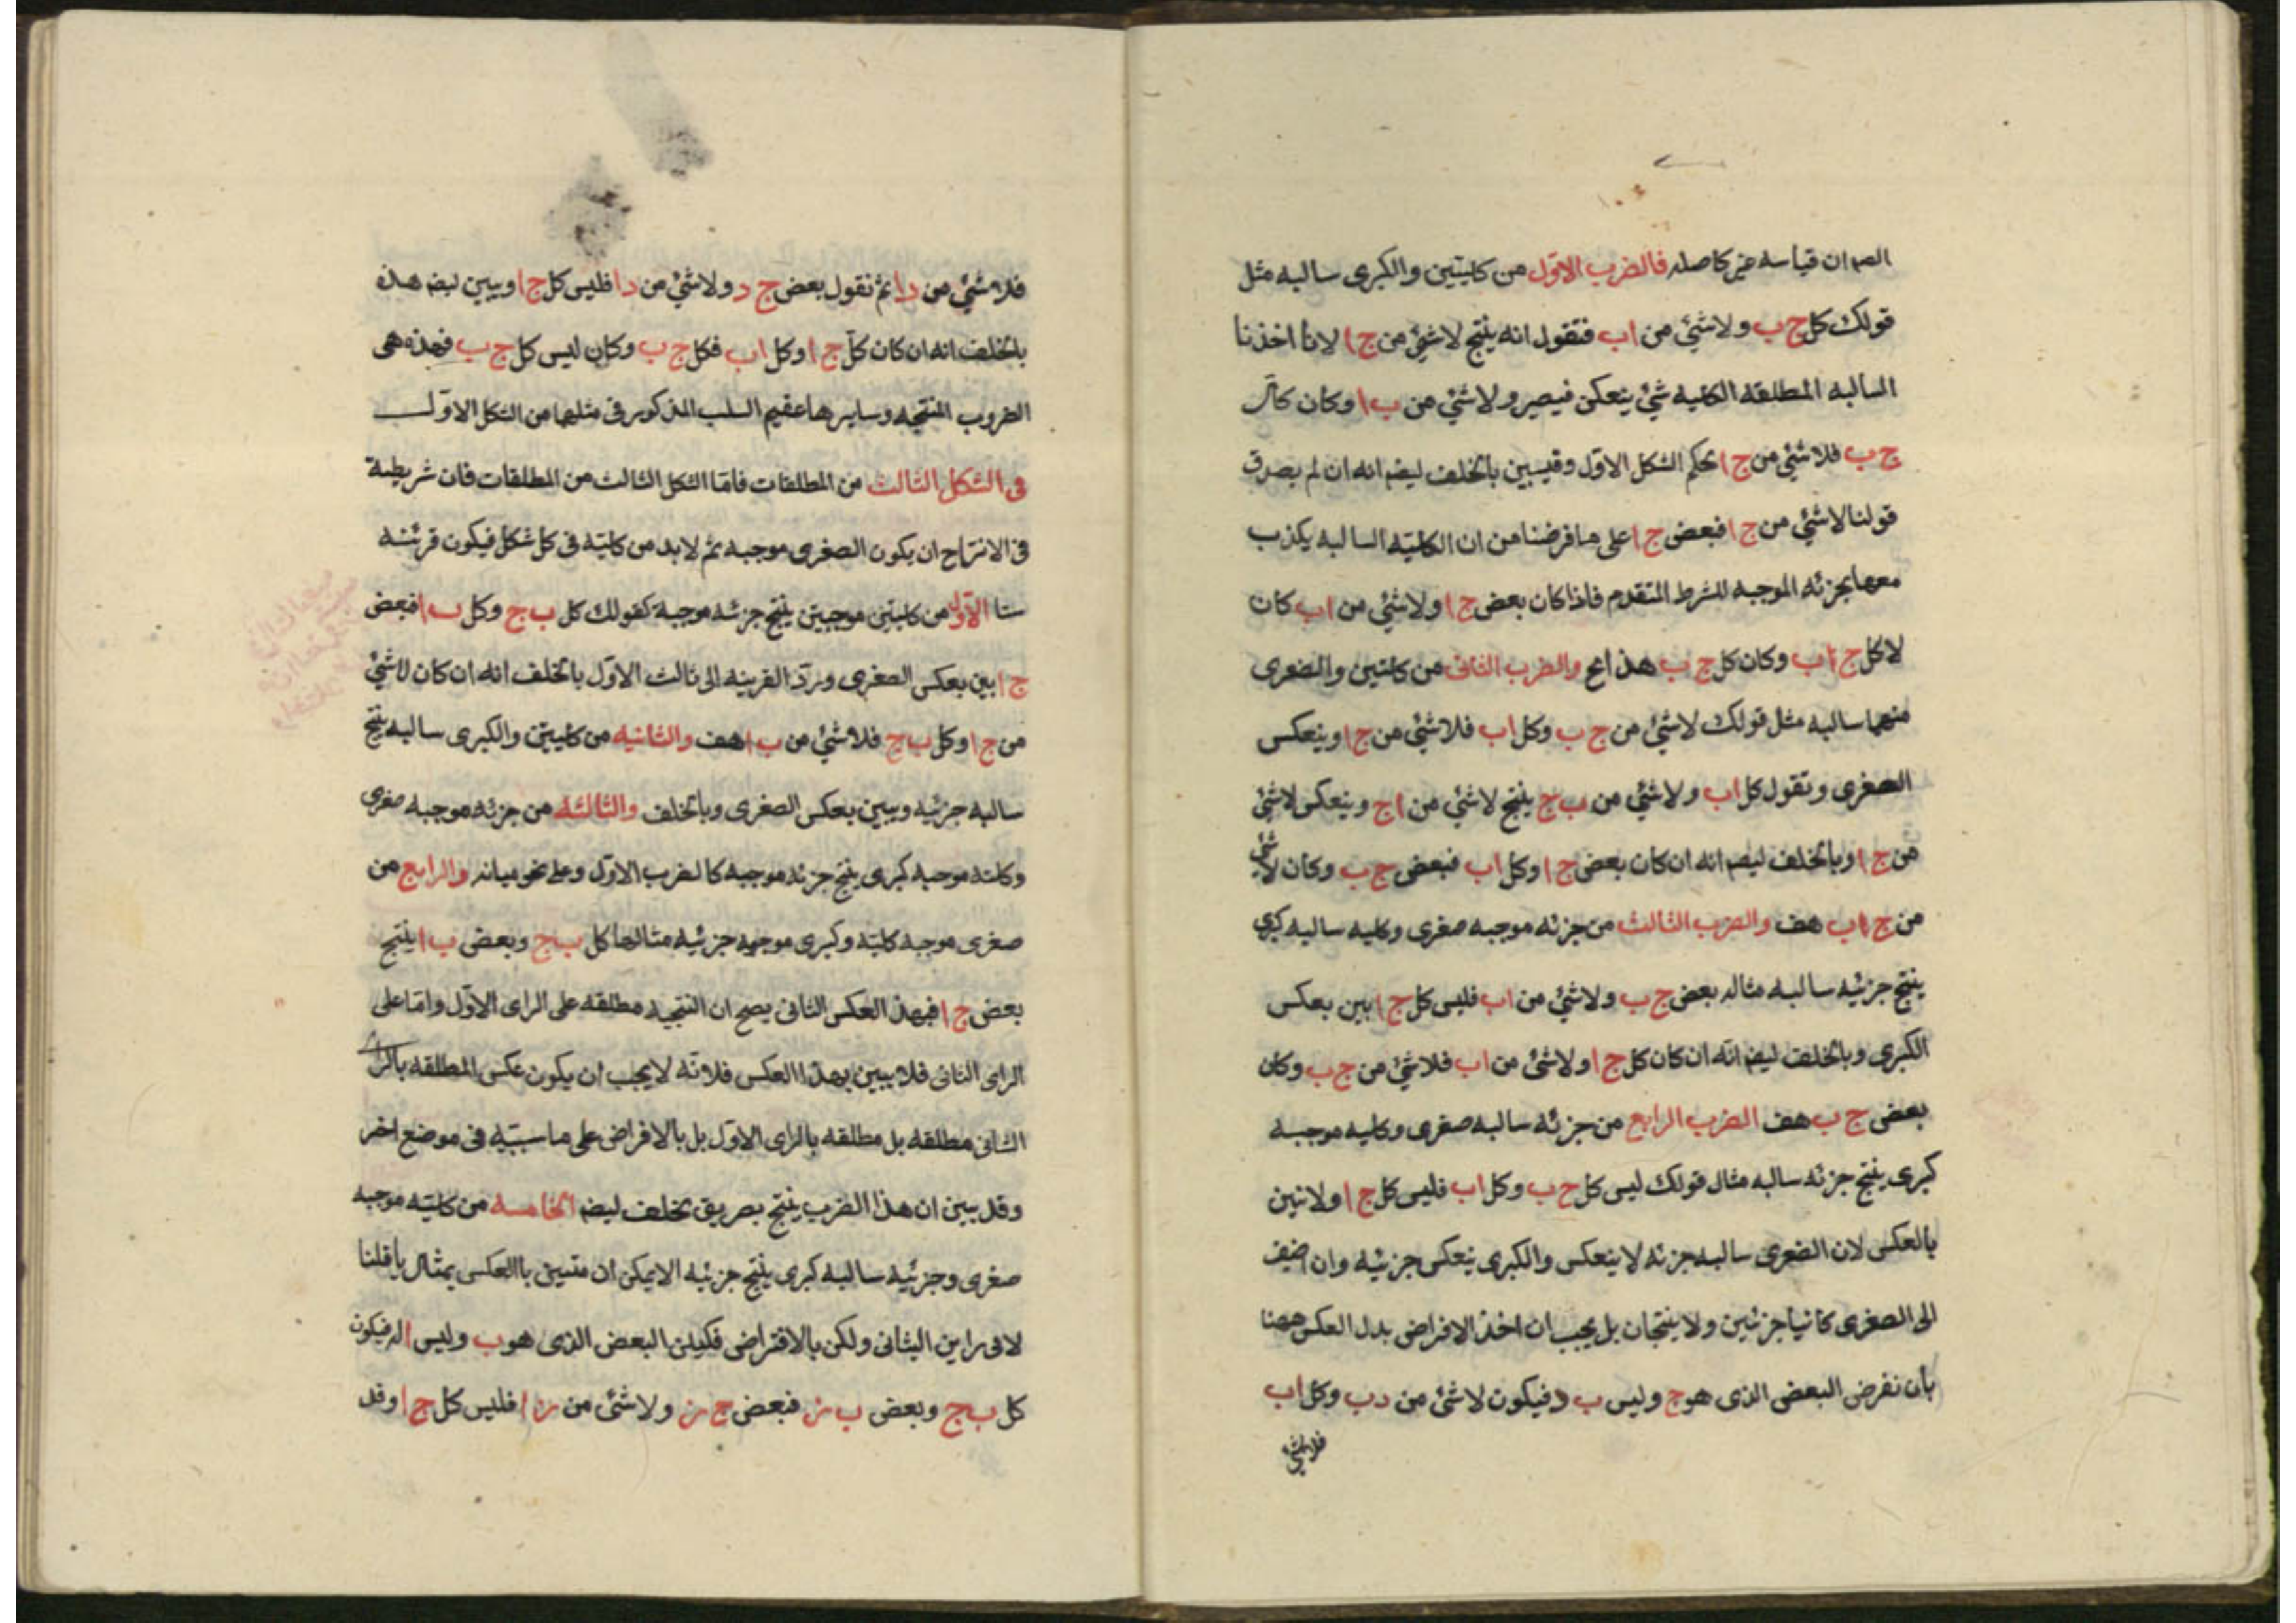 ان قياسه غير كامله فالضرب الاول من كليتين والكبرى سالبه مثل
قولك كل ج ب ولا شئ من ا ب فنقول انه ينتج لا شئ من ج ا لانا اخذنا
السالبه المطلقه الكليه شئ ينعكس فيصير ولا شئ من ب ا وكان كل
ج ب فلا شئ من ج ا بحكم الشكل الاول وقيبين بالخلف ليضم انه ان لم يصدق
قولنا لا شئ من ج ا فبعض ج ا على ما فرضنا من ان الكليه السالبه يكذب
معها بجزئه الموجبه للشرط المتقدم فاذا كان بعض ج ا ولا شئ من ا ب كان
لا كل ج ب وكان كل ج ب هذا مح والضرب الثانى من كليتين والصغرى
منهما سالبه مثل قولك لا شئ من ج ب وكل ا ب فلا شئ من ج ا وينعكس
الصغرى وتقول كل ا ب ولا شئ من ب ج ينتج لا شئ من ا ج وينعكس لا شئ
من ج ا وبالخلف ليضم انه ان كان بعض ج ا وكل ا ب فبعض ج ب وكان لا شئ
من ج ب هف والضرب الثالث من جزئه موجبه صغرى وكليه سالبه كبرى
ينتج جزئيه سالبه مثاله بعض ج ب ولا شئ من ا ب فليس كل ج ا بين بعكس
الكبرى وبالخلف ليضم انه ان كان كل ج ا ولا شئ من ا ب فلا شئ من ج ب وكان
بعض ج ب هف الضرب الرابع من جزئه سالبه صغرى وكليه موجبه
كبرى ينتج جزئه سالبه مثال قولك ليس كل ج ب وكل ا ب فليس كل ج ا ولا تبين
بالعكس لان الصغرى سالبه جزئه لا ينعكس والكبرى ينعكس جزئيه وان اضيف
الى الصغرى كانيا جزئين ولا ينتجان بل يجب ان اخذ الافراض بدل العكس ههنا
بان نفرض البعض الذى هو ج وليس ب د فيكون لا شئ من د ب وكل ا ب
فلا شئ
فلا شئ من د ا ثم نقول بعض ج د ولا شئ من د ا فليس كل ج ا ويبين ليضم هذه
بالخلف انه ان كان كل ج ا وكل ا ب فكل ج ب وكان ليس كل ج ب فهذه هى
الضروب المنتجه وسايرها عقيم السلب المذكور فى مثلها من الشكل الاول
فى الشكل الثالث من المطلقات فاما الشكل الثالث من المطلقات فان شريطة
فى الانتاج ان يكون الصغرى موجبه ثم لا بد من كليه فى كل شكل فيكون قرينه
ستا الاول من كليتين موجبتين ينتج جزئه موجبة كقولك كل ب ج وكل ب ا فبعض
ج ا بين بعكس الصغرى ورد القرينه الى ثالث الاول بالخلف انه ان كان لا شئ
من ج ا وكل ب ج فلا شئ من ب ا هف والثانيه من كليتين والكبرى سالبه ينتج
سالبه جزئيه ويبين بعكس الصغرى وبالخلف والثالثه من جزئه موجبه صغرى
وكليه موجبه كبرى ينتج جزئه موجبه كالضرب الاول وعلى نحو ميانه والرابع من
صغرى موجبه كليه وكبرى موجبه جزئيه مثالها كل ب ج وبعض ب ا ينتج
بعض ج ا فبهذا العكس الثانى يصح ان النتيجه مطلقه على الراى الاول واما على
الراى الثانى فلا يبين بهذا العكس فلانه لا يجب ان يكون عكس المطلقه بالراى
الثانى مطلقه بل مطلقه بالراى الاول بل بالافراض على ما سبينه فى موضع اخر
وقد بين ان هذا الضرب ينتج بصريق بخلف ليضم الخامسه من كليه موجبه
صغرى وجزئيه سالبه كبرى ينتج جزئيه الا يمكن ان متبين باالعكس بمثال ما قلنا
لا فى راين الثانى ولكن بالافتراض فكيلن البعض الذى هو ب وليس ا له فيكون
كل ب ج وبعض ب ز فبعض ج ز ولا شئ من ز ا فليس كل ج ا وقد